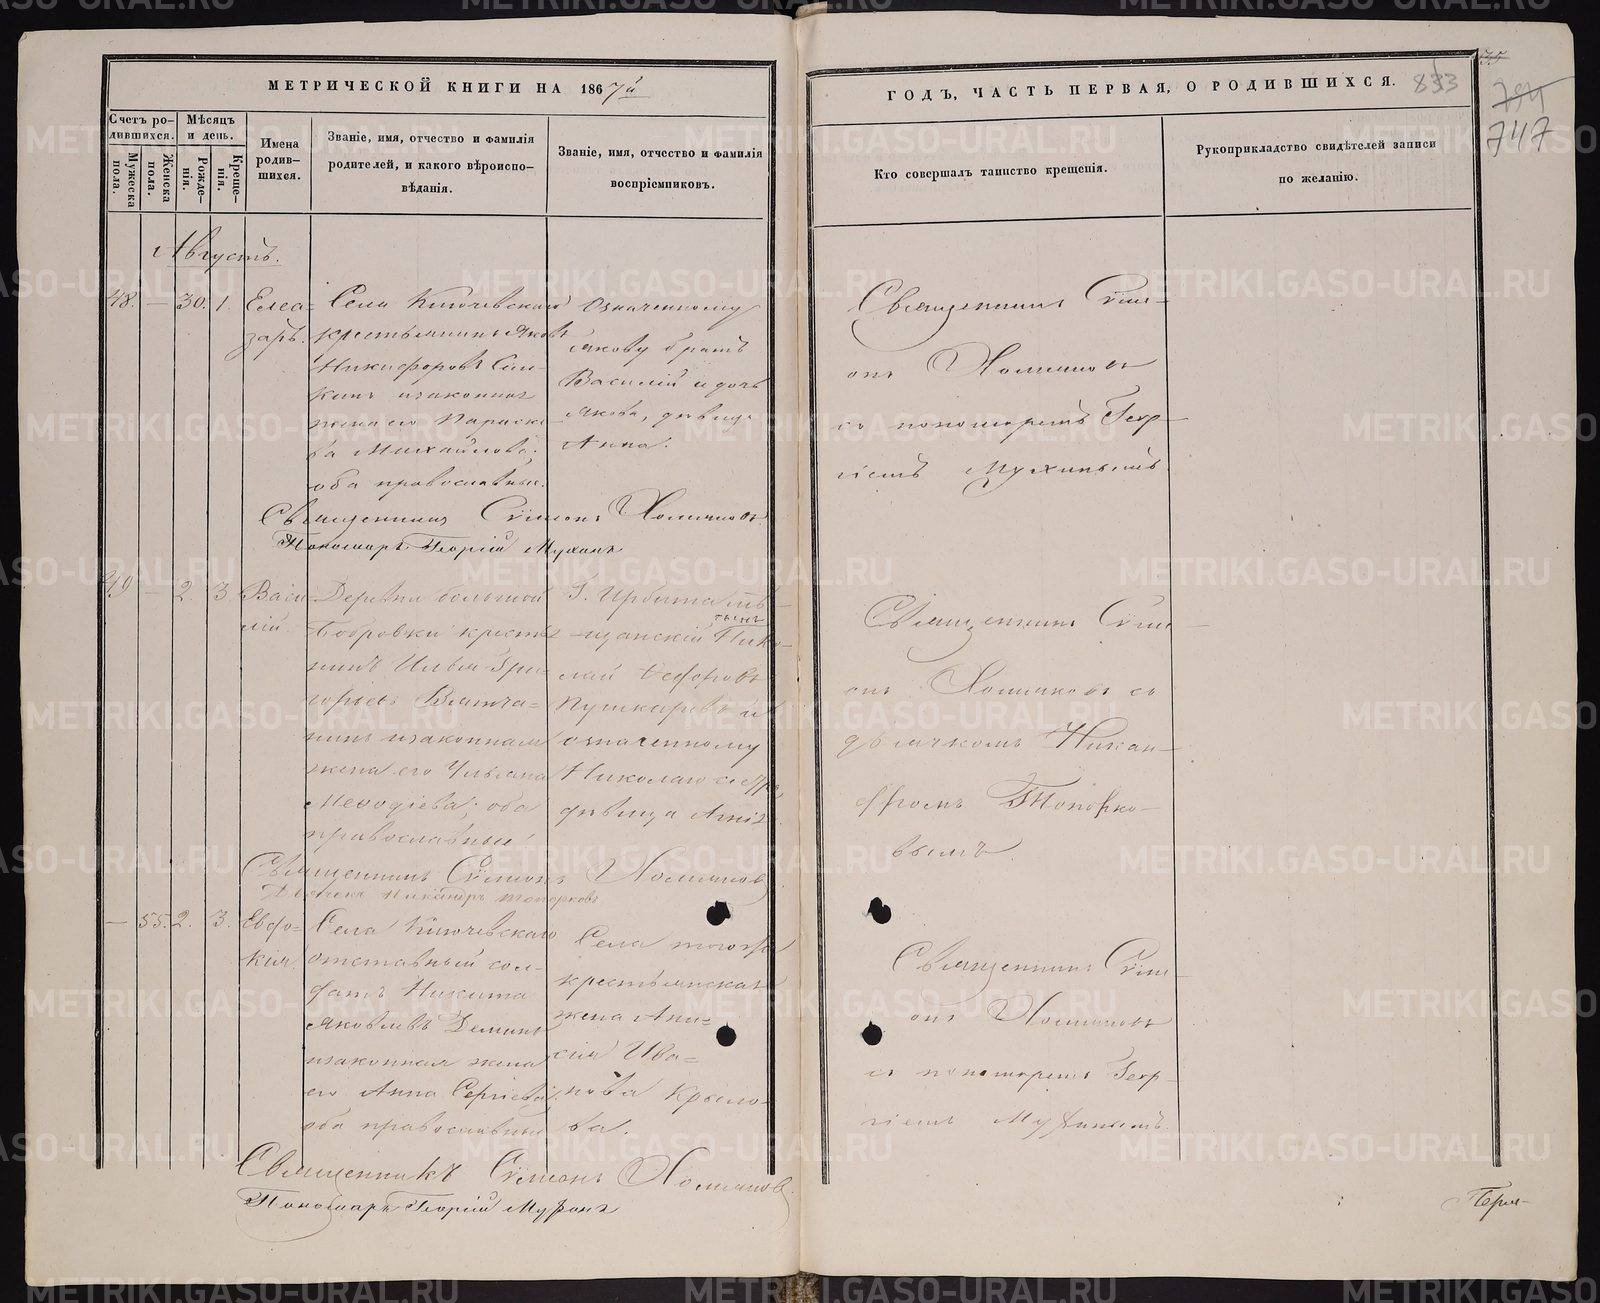 МЕТРИЧЕСКОЙ КНИГИ НА 1867й
ГОДЪ, ЧАСТЬ ПЕРВАЯ, О РОДИВШИХСЯ.
833
747
Счетъ ро-
дившихся.
Мужеска
пола.
Женска
пола.
Мѣсяцъ
и день.
Рожде-
нія.
Креще-
нія.
Имена
родив-
шихся.
Званіе, имя, отчество и фамилія
родителей, и какого вѣроиспо-
вѣданія.
Званіе, имя, отчество и фамилія
воспріемниковъ.
Кто совершалъ таинство крещенія.
Рукоприкладство свидѣтелей записи
по желанію.
Августъ.
48. — 30. 1.
Елеа-
заръ.
Села Ключевскаго
крестьянинъ Яковъ
Никифоровъ
и законная
жена его Параске-
ва Михайлова;
оба православные.
Означенному
Якову братъ
Василій и дочь
Якова, дѣвица
Анна.
Священникъ Сүме-
онъ Хомяковъ
съ пономаремъ Геор-
гіемъ Мухинымъ.
Священникъ Сүмеонъ Хомяковъ
Пономарь Георгій Мухинъ
49 — 2. 3.
Васи-
лій.
Деревни большой
Бобровки крестья-
нинъ Илья Гри-
горьевъ Вятча-
нинъ и законная
жена его Ульяна
Меѳодіева; оба
православные
Г. Ирбита мѣ-
щанскій сынъ Нико-
лай Ѳедоровъ
Пушкаревъ и
означенному
Николаю сестра
дѣвица
Священникъ Сүме-
онъ Хомяковъ съ
дьячкомъ Никан-
дромъ Топорко-
вымъ.
Священникъ Сүмеонъ Хомяковъ
Дьячекъ Никандръ Топорковъ
— 55. 2. 3.
Евдо-
кія
Села Ключевскаго
отставный сол-
датъ Никита
Яковлевъ Деминъ
и законная жена
его Анна Сергіева;
оба православные
Села тогоже
крестьянская
жена Ани-
сія Ива-
нова Крыло-
ва.
Священникъ Сүме-
онъ Хомяковъ
съ пономаремъ Геор-
гіемъ Мухинымъ.
Священникъ Сүмеонъ Хомяковъ
Пономарь Георгій Мухинъ
METRIKI.GASO-URAL.RU